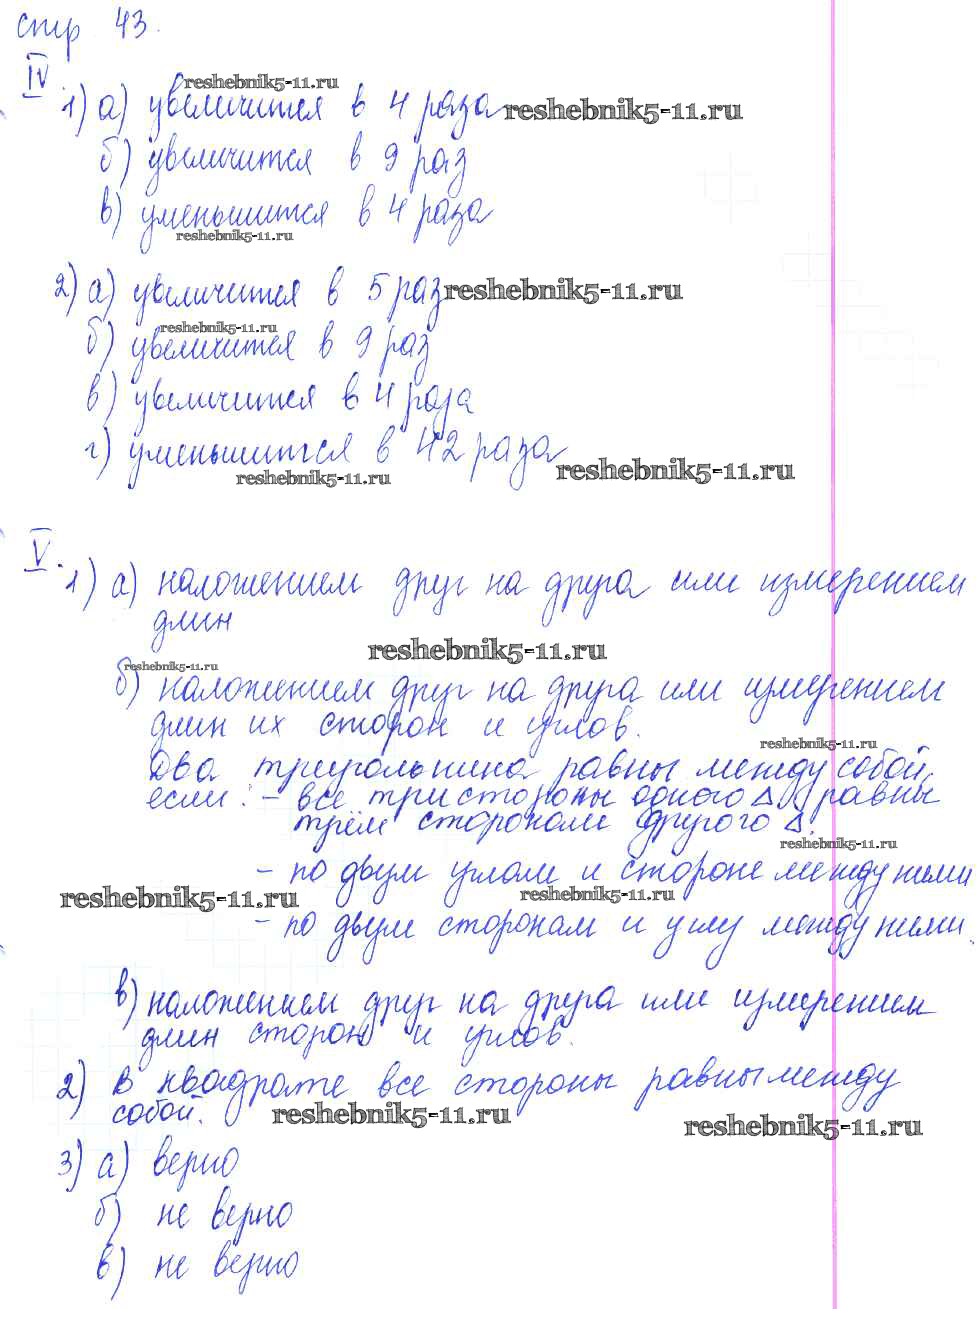 стр 43.
IV.
reshebnik5-11.ru
1) а) увеличится в 4 раза reshebnik5-11.ru
б) увеличится в 9 раз
в) уменьшится в 4 раза
reshebnik5-11.ru
2) а) увеличится в 5 раз reshebnik5-11.ru
reshebnik5-11.ru
б) увеличится в 9 раз
в) увеличится в 4 раза
г) уменьшится в 42 раза
reshebnik5-11.ru reshebnik5-11.ru
V.
1) а) наложением друг на друга или измерением
длин
reshebnik5-11.ru
reshebnik5-11.ru
б) наложением друг на друга или измерением
длин их сторон и углов.
reshebnik5-11.ru
Два треугольника равны между собой,
если: - все три стороны одного Δ равны
трём сторонам другого Δ.
reshebnik5-11.ru
- по двум углам и стороне между ними
reshebnik5-11.ru reshebnik5-11.ru
- по двум сторонам и углу между ними.
в) наложением друг на друга или измерением
длин сторон и углов.
2) в квадрате все стороны равны между
собой. reshebnik5-11.ru
reshebnik5-11.ru
3) а) верно
б) не верно
в) не верно